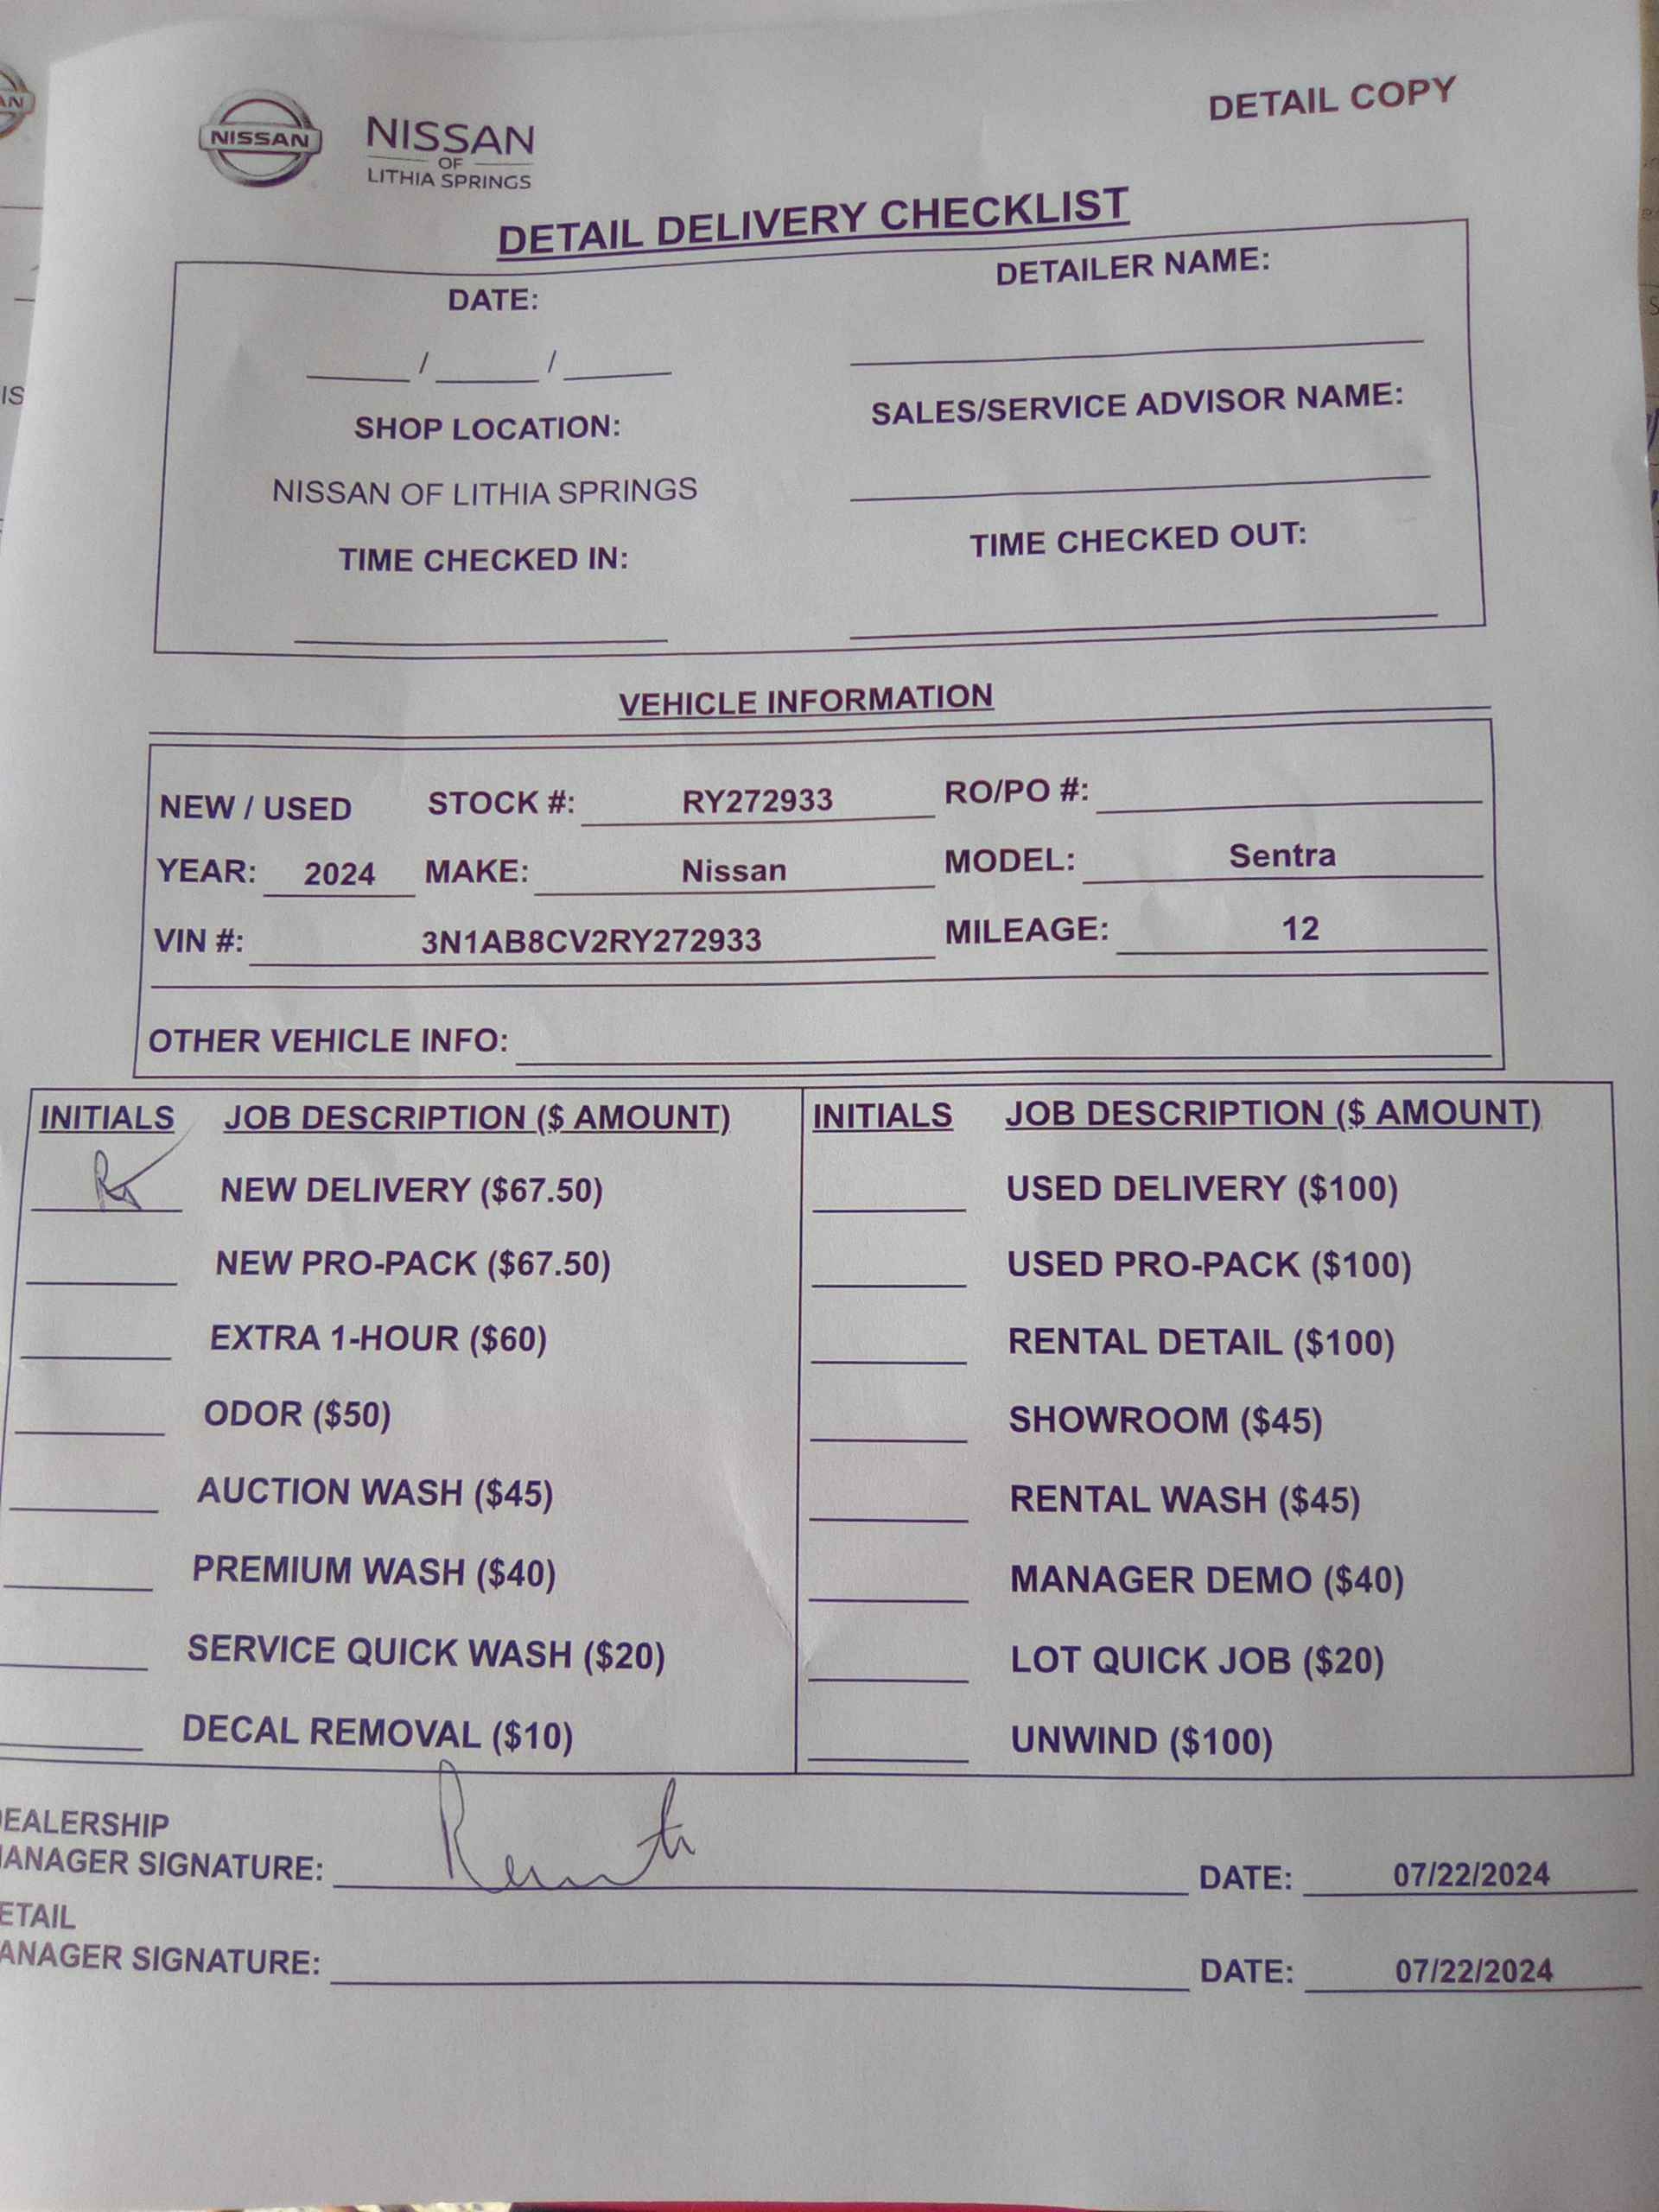 DETAIL COPY
NISSAN
NISSAN
OF
LITHIA SPRINGS
DETAIL DELIVERY CHECKLIST
DATE:
DETAILER NAME:
/ /
SHOP LOCATION:
SALES/SERVICE ADVISOR NAME:
NISSAN OF LITHIA SPRINGS
TIME CHECKED IN:
TIME CHECKED OUT:
VEHICLE INFORMATION
NEW / USED STOCK #: RY272933 RO/PO #:
YEAR: 2024 MAKE: Nissan MODEL: Sentra
VIN #: 3N1AB8CV2RY272933 MILEAGE: 12
OTHER VEHICLE INFO:
INITIALS JOB DESCRIPTION ($ AMOUNT) INITIALS JOB DESCRIPTION ($ AMOUNT)
NEW DELIVERY ($67.50) USED DELIVERY ($100)
NEW PRO-PACK ($67.50) USED PRO-PACK ($100)
EXTRA 1-HOUR ($60) RENTAL DETAIL ($100)
ODOR ($50) SHOWROOM ($45)
AUCTION WASH ($45) RENTAL WASH ($45)
PREMIUM WASH ($40) MANAGER DEMO ($40)
SERVICE QUICK WASH ($20) LOT QUICK JOB ($20)
DECAL REMOVAL ($10) UNWIND ($100)
EALERSHIP
ANAGER SIGNATURE: DATE: 07/22/2024
ETAIL
ANAGER SIGNATURE: DATE: 07/22/2024